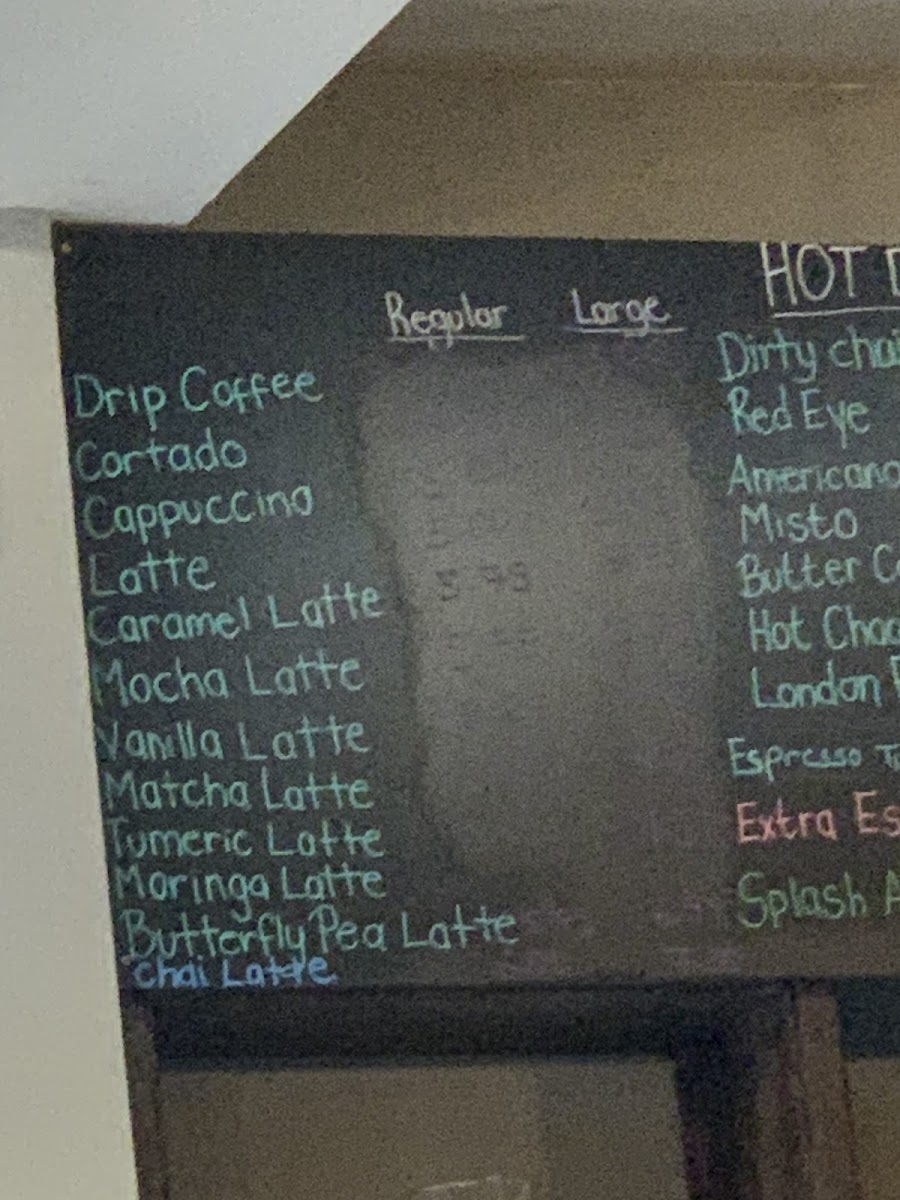 Regular Large
Drip Coffee
Cortado
Cappuccino
Latte
Caramel Latte
Mocha Latte
Vanilla Latte
Matcha Latte
Tumeric Latte
Moringa Latte
Butterfly Pea Latte
Chai Latte
HOT
Dirty chai
Red Eye
Americano
Misto
Butter
Hot
London
Espresso
Extra
Splash